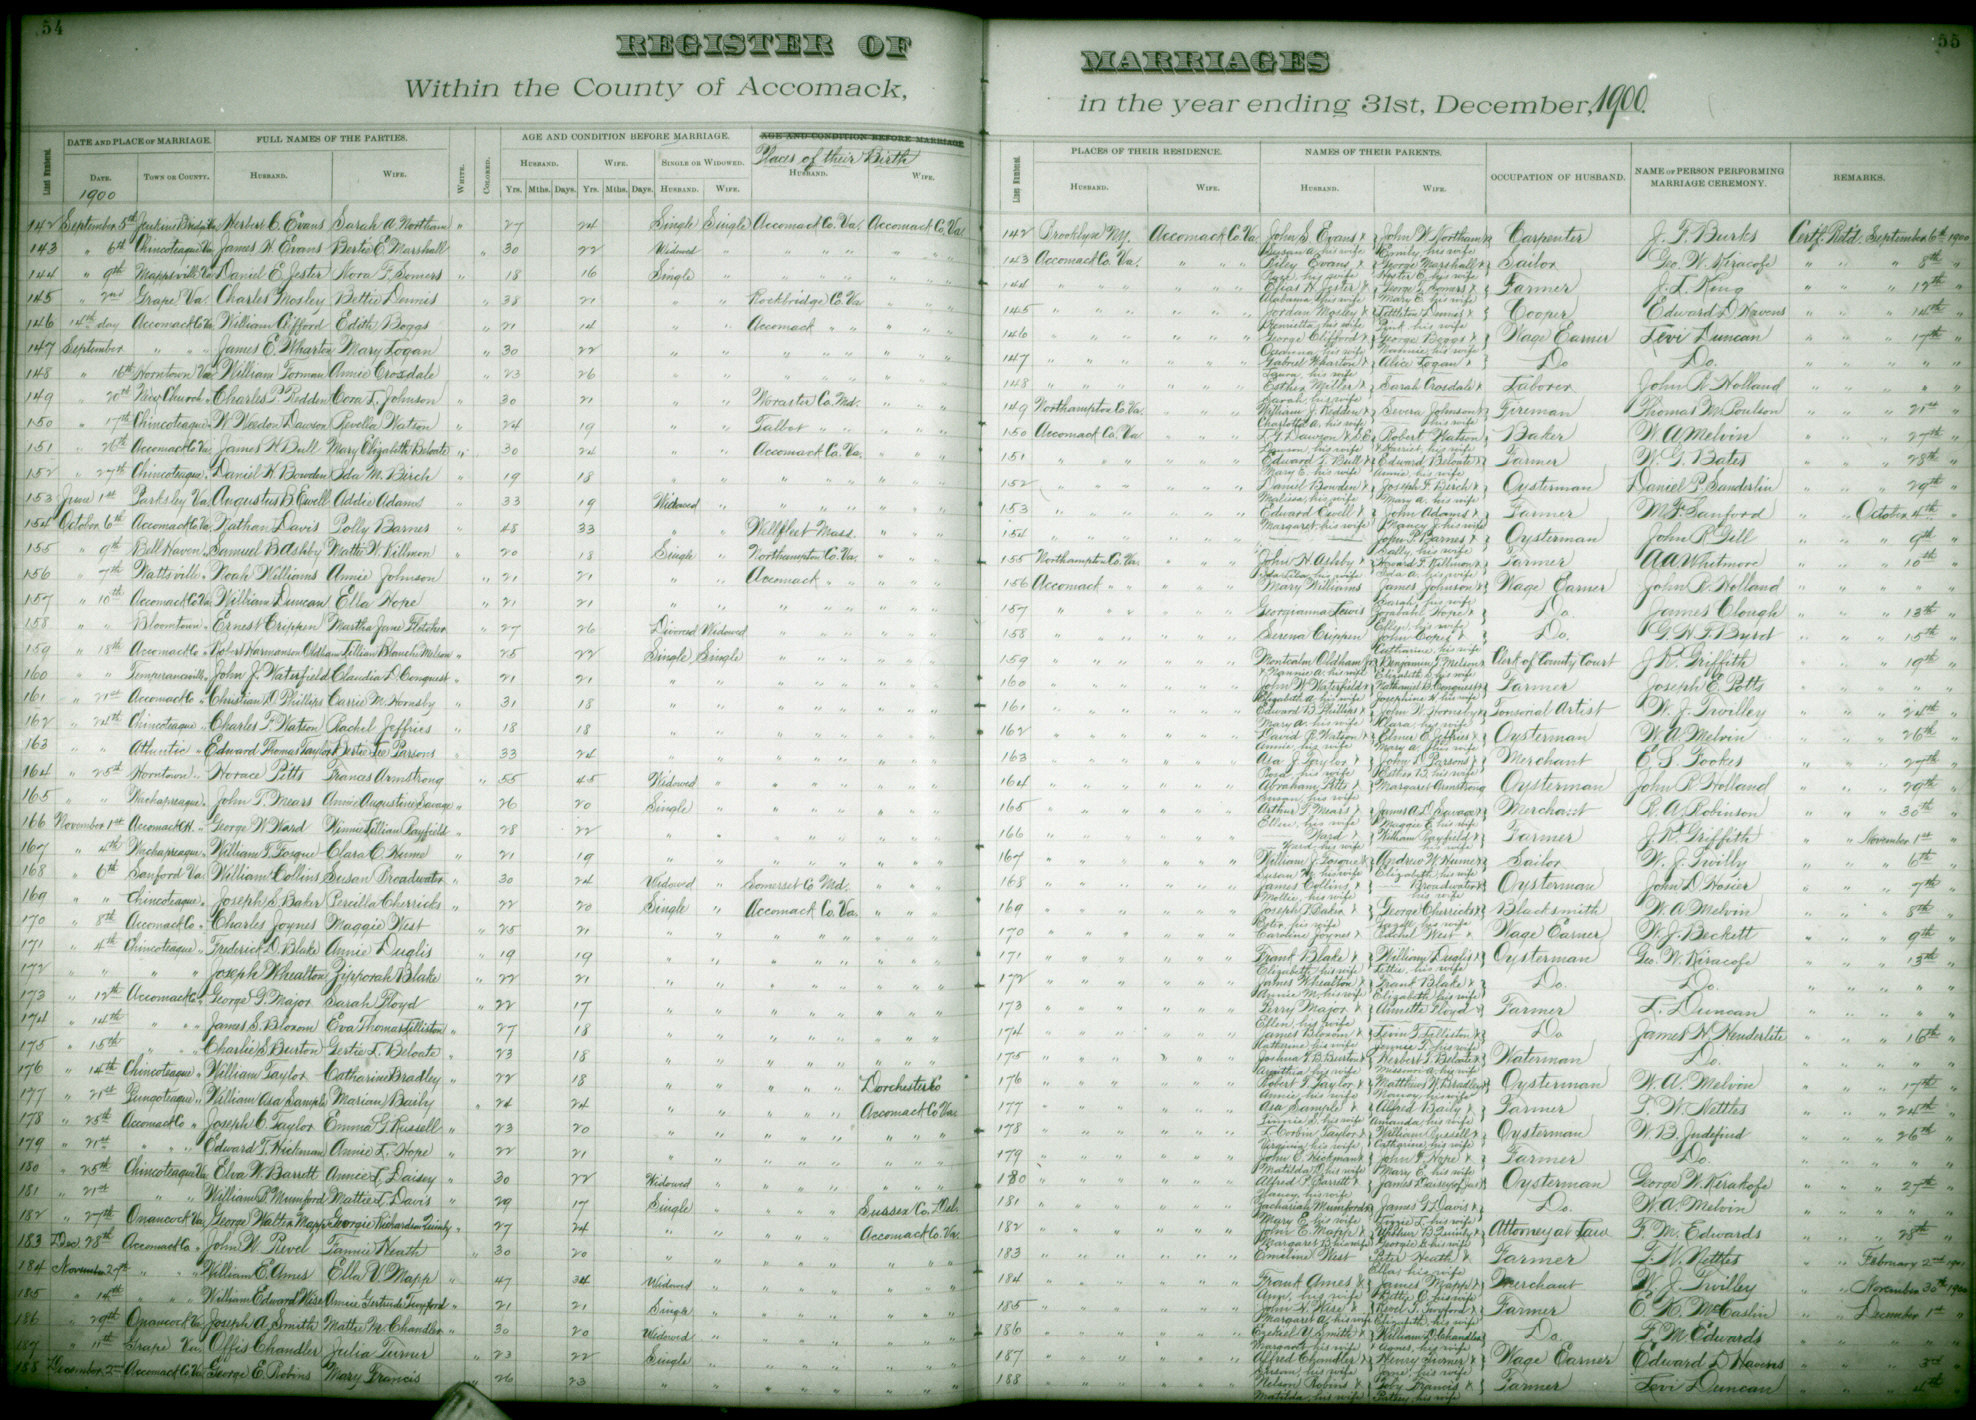 54
REGISTER OF
Within the County of Accomack,
Line Numbers.
DATE AND PLACE OF MARRIAGE.
FULL NAMES OF THE PARTIES.
WHITE.
COLORED.
AGE AND CONDITION BEFORE MARRIAGE.
AGE AND CONDITION BEFORE MARRIAGE.
Places of their Birth
DATE. TOWN OR COUNTY. HUSBAND. WIFE. HUSBAND. WIFE. SINGLE OR WIDOWED. HUSBAND. WIFE.
1900
Yrs. Mths. Days. Yrs. Mths. Days. HUSBAND. WIFE.
142 September 5th Jenkins Bridge Va Herbert C. Evans Sarah A. Northam " 27 24 Single Single Accomack Co. Va. Accomack Co. Va.
143 " 6th Chincoteague Va James H. Evans Bertie E. Marshall " 30 22 Widowed " " "
144 " 9th Mappsville Va Daniel E. Jester Nora F. Somers " 18 16 Single " " "
145 " 2nd Grape Va. Charles Mosley Bettie Dennis " 38 21 " " Rockbridge Co. Va "
146 14th day Accomack Co Va William Clifford Edith Boggs " 21 14 " " Accomack " " "
147 September " " James E. Wharton Mary Logan " 30 22 " " " "
148 " 16th Horntown Va William Forman Annie Crosdale " 23 26 " " " "
149 " 20th New Church " Charles P. Redden Cora L. Johnson " 30 21 " " Worcester Co. Md. "
150 " 17th Chincoteague " W. Weedon Dawson Levella Watson " 24 19 " " Talbot " " "
151 " 26th Accomack Co Va James H. Bull Mary Elizabeth Beloate " 30 24 " " Accomack Co. Va. "
152 " 27th Chincoteague " Daniel W. Bowden Ida M. Birch " 19 18 " " " "
153 June 1st Parksley Va Augustus B. Ewell Addie Adams " 33 19 Widowed " " "
154 October 6th Accomack Co. Va. Nathan Davis Polly Barnes " 48 33 " " Wellfleet Mass. "
155 " 9th Bell Haven " Samuel B Ashby Matte W. Killmon " 20 18 Single " Northampton Co. Va. "
156 " 7th Wattsville " Noah Williams Annie Johnson " 21 21 " " Accomack " " "
157 " 10th Accomack Co Va William Duncan Ella Hope " 21 21 " " " "
158 " " Bloomtown " Ernest Crippen Martha Jane Fletcher " 27 26 Divorced Widowed " "
159 " 18th Accomack Co " Robert Harmanson Oldham Lillian Blanche Melson " 25 22 Single Single " "
160 " " Temperanceville " John J. Waterfield Claudia D. Conquest " 21 21 " " " "
161 " 21st Accomack Co " Christian D. Phillips Carrie M. Hornsby " 31 18 " " " "
162 " 24th Chincoteague " Charles T. Watson Rachel Jeffries " 18 18 " " " "
163 " " Atlantic " Edward Thomas Taylor Bertie Lee Parsons " 33 24 " " " "
164 " 25th Horntown " Horace Pitts Frances Armstrong " 55 45 Widowed " " "
165 " " Wachapreague " John T. Mears Annie Augustine Savage " 26 20 Single " " "
166 November 1st Accomack C.H. " George W. Ward Winnie Lillian Payfield " 28 22 " " " "
167 " 4th Wachapreague " William T. Fosque Clara C. Hume " 21 19 " " " "
168 " 6th Sanford Va. William Collins Susan Broadwater " 30 24 Widowed " Somerset Co Md. "
169 " " Chincoteague " Joseph S. Baker Percilla Cherricks " 22 20 Single " Accomack Co. Va. "
170 " 8th Accomack Co " Charles Joynes Maggie West " 25 21 " " " "
171 " 4th Chincoteague " Frederick D. Blake Annie Duglis " 19 19 " " " "
172 " " " " Joseph Whealton Zipporah Blake " 22 21 " " " "
173 " 12th Accomack Co. George G. Major Sarah Floyd " 22 17 " " " "
174 " 14th " " James S. Bloxom Eva Thomas Lilliston " 27 18 " " " "
175 " 15th " " Charlie S. Burton Gertie L. Beloate " 23 18 " " " "
176 " 14th Chincoteague " William Taylor Catharine Bradley " 22 18 " " " Dorchester Co
177 " 21st Pungoteague " William Asa Sample Marian Baily " 24 24 " " " Accomack Co Va.
178 " 25th Accomack Co " Joseph C. Taylor Emma G. Russell " 23 20 " " " "
179 " 21st " " Edward T. Hickman Annie L. Hope " 22 21 " " " "
180 " 25th Chincoteague Va Elva W. Barrett Annie L. Daisey " 30 22 Widowed " " "
181 " 21st " " William P. Mumford Mattie L. Davis " 29 17 Single " " Sussex Co. Del.
182 " 27th Onancock Va. George Walter Mapp Georgie Richardson Quinby " 27 24 " " " Accomack Co. Va.
183 Dec. 28th Accomack Co. John W. Revel Fannie Heath " 30 20 " " " "
184 November 27th " " William E. Ames Ella V. Mapp " 47 34 Widowed " " "
185 " 14th " " William Edward Wise Annie Gertrude Twyford " 21 21 Single " " "
186 " 29th Onancock Va. Joseph A. Smith Mattie M. Chandler " 30 20 Widowed " " "
187 " 11th Grape Va. Offis Chandler Julia Turner " 23 22 Single " " "
188 December 2nd Accomack Co. Va. George E. Robins Mary Francis " 26 23 " " " "
55
MARRIAGES
in the year ending 31st, December, 1900.
Line Numbers.
PLACES OF THEIR RESIDENCE. NAMES OF THEIR PARENTS. OCCUPATION OF HUSBAND. NAME OF PERSON PERFORMING MARRIAGE CEREMONY. REMARKS.
HUSBAND. WIFE. HUSBAND. WIFE.
142 Brooklyn N.Y. Accomack Co. Va. John S. Evans & Susan A. his wife John W. Northam & Emily, his wife Carpenter J. F. Burks Certf. Retd. September 6th 1900
143 Accomack Co. Va. " Riley Evans & his wife George Marshall & Hester E. his wife Sailor Geo. W. Kiracofe " " 8th "
144 " " Elias H. Jester & Alabama, his wife George T. Somers & Mary E. his wife Farmer J. L. King " " 12th "
145 " " Jordan Mosley & Henrietta, his wife Littleton Dennis & his wife Cooper Edward D. Havens " " 14th "
146 " " George Clifford & his wife George Boggs & Nannie his wife Wage Earner Levi Duncan " " 17th "
147 " " Gabriel Wharton & Laura, his wife Alice Logan Do Do. " " "
148 " " Esther Miller & Sarah, his wife Sarah Crosdale Laborer John R. Holland " " "
149 Northampton Co. Va. " William J. Redden & Charlotte A. his wife Severa Johnson & his wife Fireman Thomas M. Poulson " " 21st "
150 Accomack Co. Va " Dawson his wife Robert Watson & Harriet, his wife Baker W. A. Melvin " " 27th "
151 " " Edward T. Bull & Mary E. his wife Edward Beloate & Annie, his wife Farmer W. G. Bates " " 28th "
152 " " Daniel Bowden & Malissa, his wife Joseph T. Birch & Mary A. his wife Oysterman Daniel P. Sanderlin " " 29th "
153 " " Edward Ewell & Margaret, his wife John Adams & Nancy J. his wife Farmer M. F. Sanford " October 4th "
154 " " John P. Barnes & Sally, his wife Oysterman John R. Gill " " 9th "
155 Northampton Co. Va. " John H. Ashby & his wife Edward T. Killmon & Ida A. his wife Farmer A A Whitmore " " 10th "
156 Accomack " " " Mary Williams James Johnson & Sarah, his wife Wage Earner John R. Holland " " "
157 " " Georgianna Lewis Hope & his wife Do James Clough " " 13th "
158 " " Serena Crippen John Copes & Catharine, his wife Do. G. H. T. Byrd " " 15th "
159 " " Montcalm Oldham Jr. & Nannie A. his wife Benjamin T. Melson & Elizabeth S. his wife Clerk of County Court J. R. Griffith " " 19th "
160 " " John W. Waterfield & Elizabeth A. his wife Nathaniel D. Conquest & Josephine H. his wife Farmer Joseph E. Potts " " "
161 " " Edward B. Phillips & Mary A. his wife John W. Hornsby & Clara, his wife Tonsorial Artist W. J. Twilley " " 24th "
162 " " David R. Watson & Annie, his wife Elmer E. Jeffries & Mary A. his wife Oysterman W. A. Melvin " " 26th "
163 " " Asa J. Taylor & his wife John D. Parsons & Esther B. his wife Merchant E. S. Fooks " " 27th "
164 " " Abraham Pitts & Susan, his wife Margaret Armstrong Oysterman John R. Holland " " 29th "
165 " " Arthur T. Mears & Ellen, his wife James A. D. Savage & Maggie E. his wife Merchant R. A. Robinson " " 30th "
166 " " Ward & Ward his wife William Payfield & his wife Farmer J. R. Griffith " " November 1st "
167 " " William J. Fosque & Susan W. his wife Andrew W. Hume & Elizabeth, his wife Sailor W. J. Twilly " " 6th "
168 " " James Collins & Mollie, his wife Broadwater & his wife Oysterman John D. Hosier " " 7th "
169 " " Joseph T. Baker & his wife George Cherricks & his wife Blacksmith W. A. Melvin " " 8th "
170 " " Caroline Joynes Rachel West Wage Earner W. J. Beckett " " 9th "
171 " " Frank Blake & Elizabeth, his wife William Duglis & Lettie, his wife Oysterman Geo. W. Kiracofe " " 13th "
172 " " James Whealton & Annie M. his wife Frank Blake & Elizabeth, his wife Do. Do. " " "
173 " " Perry Major & Ellen, his wife Annette Floyd Farmer L. Duncan " " "
174 " " James Bloxom & Katherine, his wife Levin T. Lilliston & Jennie T. his wife Do James H. Henderlite " " 16th "
175 " " Joshua T. B. Burton & his wife Herbert T. Beloate & Missouri A. his wife Waterman Do. " " "
176 " " Robert T. Taylor & Annie, his wife Matthew W. Bradley & his wife Oysterman W. A. Melvin " " 17th "
177 " " Asa Sample & his wife Alfred Baily & Amanda, his wife Farmer T. W. Nettles " " 24th "
178 " " L. Corbin Taylor & Virginia, his wife William Russell & Catharine, his wife Oysterman W. B. Judefind " " 26th "
179 " " John E. Hickman & Matilda D. his wife John T. Hope & Mary E. his wife Farmer Do. " " "
180 " " Alfred P. Barrett & Nancy, his wife James Daisey of Jas Oysterman George W. Kirakofe " " 27th "
181 " " Zachariah Mumford & Mary E. his wife James G. Davis & Lizzie L. his wife Do. W. A. Melvin " " "
182 " " John E. Mapp & Margaret B. his wife Upshur B. Quinby & Georgie R. his wife Attorney at Law F. M. Edwards " " 28th "
183 " " Emeline West Peter Heath & Ella, his wife Farmer T. W. Nettles " " February 2nd 1901
184 " " Frank Ames & Ann, his wife James Mapp & Bettie C. his wife Merchant W. J. Twilley " " November 30th 1900
185 " " John H. Wise & Margaret A. his wife Revel T. Twyford & Elizabeth, his wife Farmer E. K. McCaslin " " December 1st "
186 " " Ezekiel U. Smith & Margaret his wife William D. Chandler & Agnes, his wife Do. F. M. Edwards " " "
187 " " Alfred Chandler & his wife Henry Turner & Jane, his wife Wage Earner Edward D Havens " " 3rd "
188 " " Nelson Robins & Matilda, his wife Toby Francis & Patsey, his wife Farmer Levi Duncan " " 4th "